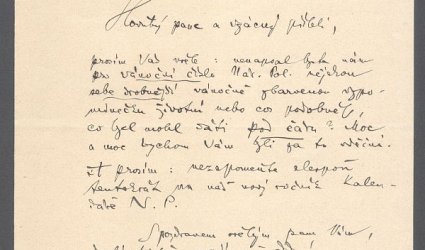 Horský pane a vzácný příteli,
prosím Vás vřele: nenapsal byste nám
pro vánoční číslo Nár. Pol. nějakou
sebe drobnější vánočně zbarvenou vzpo-
mínečku životní nebo cos podobného,
co bychom mohl dáti pod čáru? Moc
a moc bychom Vám byli za to vděčni.
A prosím: nezapomeňte alespoň
tentokrát na náš nový ročník Kalen-
dáře N. P.
S pozdravem